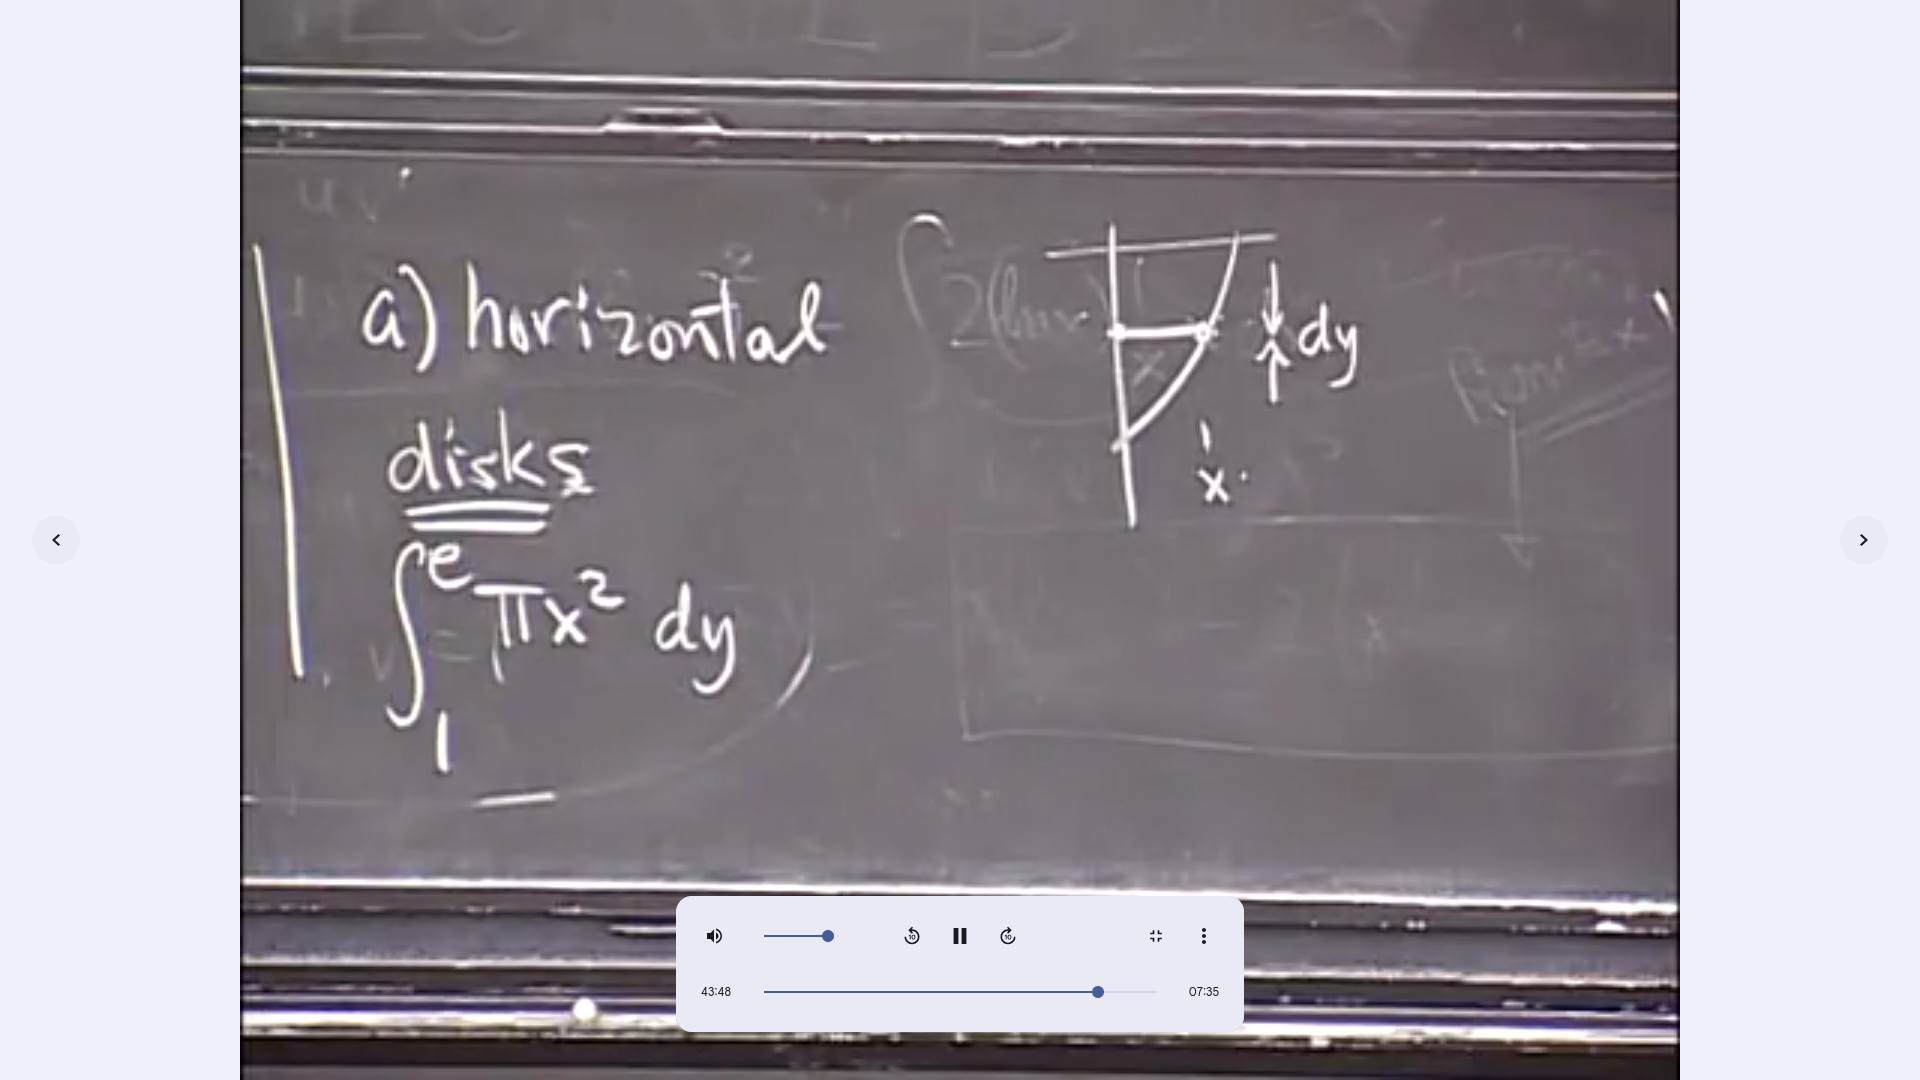 a) horizontal
disks
∫₁ᵉ πx² dy
x
dy
x
43:48
07:35